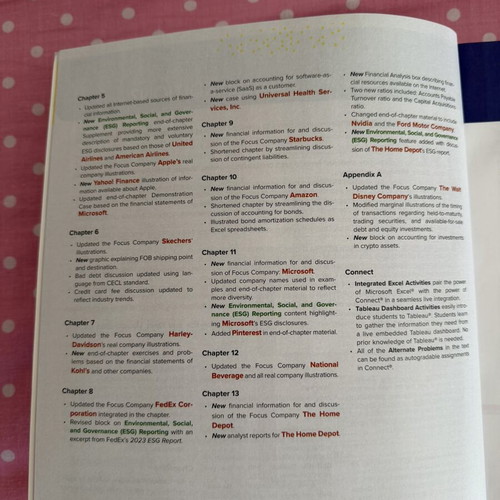 Chapter 5
• Updated all Internet-based sources of finan-
cial information.
• New Environmental, Social, and Gover-
nance (ESG) Reporting end-of-chapter
Supplement providing more extensive
description of mandatory and voluntary
ESG disclosures based on those of United
Airlines and American Airlines.
• Updated the Focus Company Apple's real
company illustrations.
• New Yahoo! Finance illustration of infor-
mation available about Apple.
• Updated end-of-chapter Demonstration
Case based on the financial statements of
Microsoft.
Chapter 6
• Updated the Focus Company Skechers'
illustrations.
• New graphic explaining FOB shipping point
and destination.
• Bad debt discussion updated using lan-
guage from CECL standard.
• Credit card fee discussion updated to
reflect industry trends.
Chapter 7
• Updated the Focus Company Harley-
Davidson's real company illustrations.
• New end-of-chapter exercises and prob-
lems based on the financial statements of
Kohl's and other companies.
Chapter 8
• Updated the Focus Company FedEx Cor-
poration integrated in the chapter.
• Revised block on Environmental, Social,
and Governance (ESG) Reporting with an
excerpt from FedEx's 2023 ESG Report.
• New block on accounting for software-as-
a-service (SaaS) as a customer.
• New case using Universal Health Ser-
vices, Inc.
Chapter 9
• New financial information for and discus-
sion of the Focus Company Starbucks.
• Shortened chapter by streamlining discus-
sion of contingent liabilities.
Chapter 10
• New financial information for and discus-
sion of the Focus Company Amazon.
• Shortened chapter by streamlining the dis-
cussion of accounting for bonds.
• Illustrated bond amortization schedules as
Excel spreadsheets.
Chapter 11
• New financial information for and discus-
sion of Focus Company: Microsoft.
• Updated company names used in exam-
ples and end-of-chapter material to reflect
more diversity.
• New Environmental, Social, and Gover-
nance (ESG) Reporting content highlight-
ing Microsoft's ESG disclosures.
• Added Pinterest in end-of-chapter material.
Chapter 12
• Updated the Focus Company National
Beverage and all real company illustrations.
Chapter 13
• New financial information for and discus-
sion of the Focus Company The Home
Depot.
• New analyst reports for The Home Depot.
• New Financial Analysis box describing finan-
cial resources available on the Internet.
• Two new ratios included: Accounts Payable
Turnover ratio and the Capital Acquisitions
ratio.
• Changed end-of-chapter material to include
Nvidia and the Ford Motor Company.
• New Environmental, Social, and Governance
(ESG) Reporting feature added with discus-
sion of The Home Depot's ESG report.
Appendix A
• Updated the Focus Company The Walt
Disney Company's illustrations.
• Modified marginal illustrations of the timing
of transactions regarding held-to-maturity,
trading securities, and available-for-sale
debt and equity investments.
• New block on accounting for investments
in crypto assets.
Connect
• Integrated Excel Activities pair the power
of Microsoft Excel® with the power of
Connect® in a seamless live integration.
• Tableau Dashboard Activities easily intro-
duce students to Tableau®. Students learn
to gather the information they need from
a live embedded Tableau dashboard. No
prior knowledge of Tableau® is needed.
• All of the Alternate Problems in the text
can be found as autogradable assignments
in Connect®.